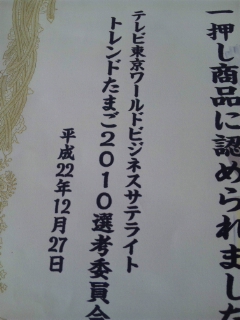 一押し商品に認められました
テレビ東京ワールドビジネスサテライト
トレンドたまご2010選考委員会
平成22年12月27日